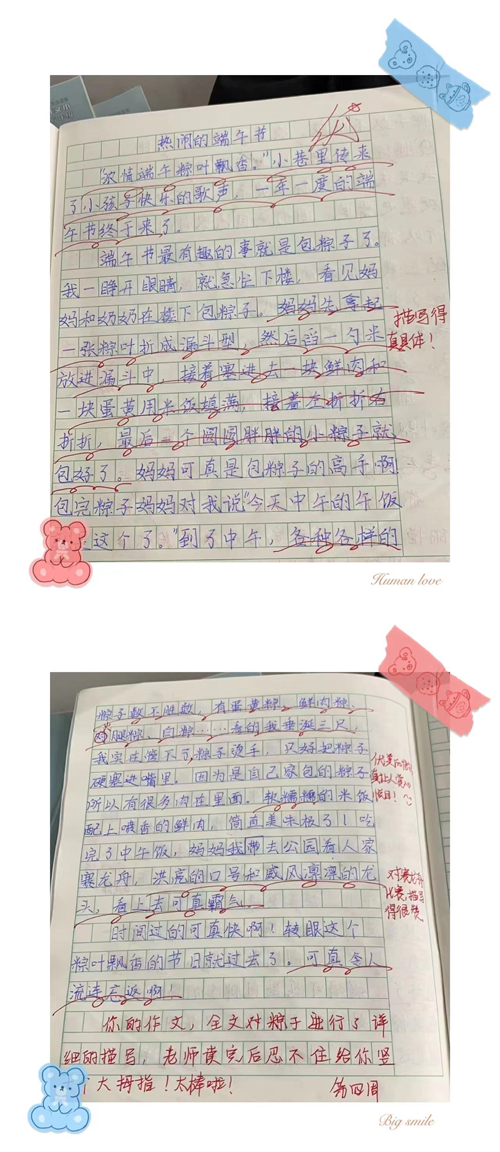 热闹的端午节
“浓情端午粽叶飘香。”小巷里传来
了小孩子快乐的歌声，一年一度的端
午节终于来了。
端午节最有趣的事就是包粽子了。
我一睁开眼睛，就急忙下楼，看见妈
妈和奶奶在楼下包粽子。妈妈先拿起
一张粽叶折成漏斗型，然后舀一勺米
放进漏斗中，接着塞进去一块鲜肉和
一块蛋黄用米饭填满，接着左折折右
折折，最后一个圆圆胖胖的小粽子就
包好了。妈妈可真是包粽子的高手啊
包完粽子妈妈对我说“今天中午的午饭
这个了。”到了中午，各种各样的
描写得
真具体！
Human love
粽子数不胜数，有蛋黄粽、鲜肉粽、
腿粽、白粽……看的我垂涎三尺
我实在馋不了，粽子烫手，只好把粽子
硬塞进嘴里。因为是自己家包的粽子
所以有很多肉在里面。软糯糯的米饭
配上喷香的鲜肉，简直美味极了！吃
完了中午饭，妈妈我带去公园看人家
赛龙舟，洪亮的口号和威风凛凛的龙
头，看上去可真霸气。
时间过的可真快啊！转眼这个
粽叶飘香的节日就过去了。可真令人
流连忘返啊！
对赛龙舟
比赛描写
得很
你的作文，全文对粽子进行了详
细的描写，老师读完后忍不住给你竖
个大拇指！太棒啦！
第四周
Big smile